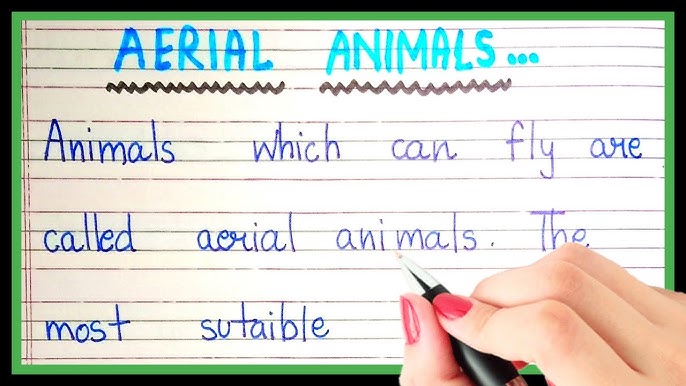 AERIAL ANIMALS...
Animals which can fly are
called aerial animals. The
most sutaible